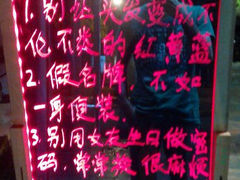 1.别把头发整成不
伦不类的红黄蓝
2.假名牌,不如
一身便装.
3.别用女友生日做密
码,常常换很麻烦